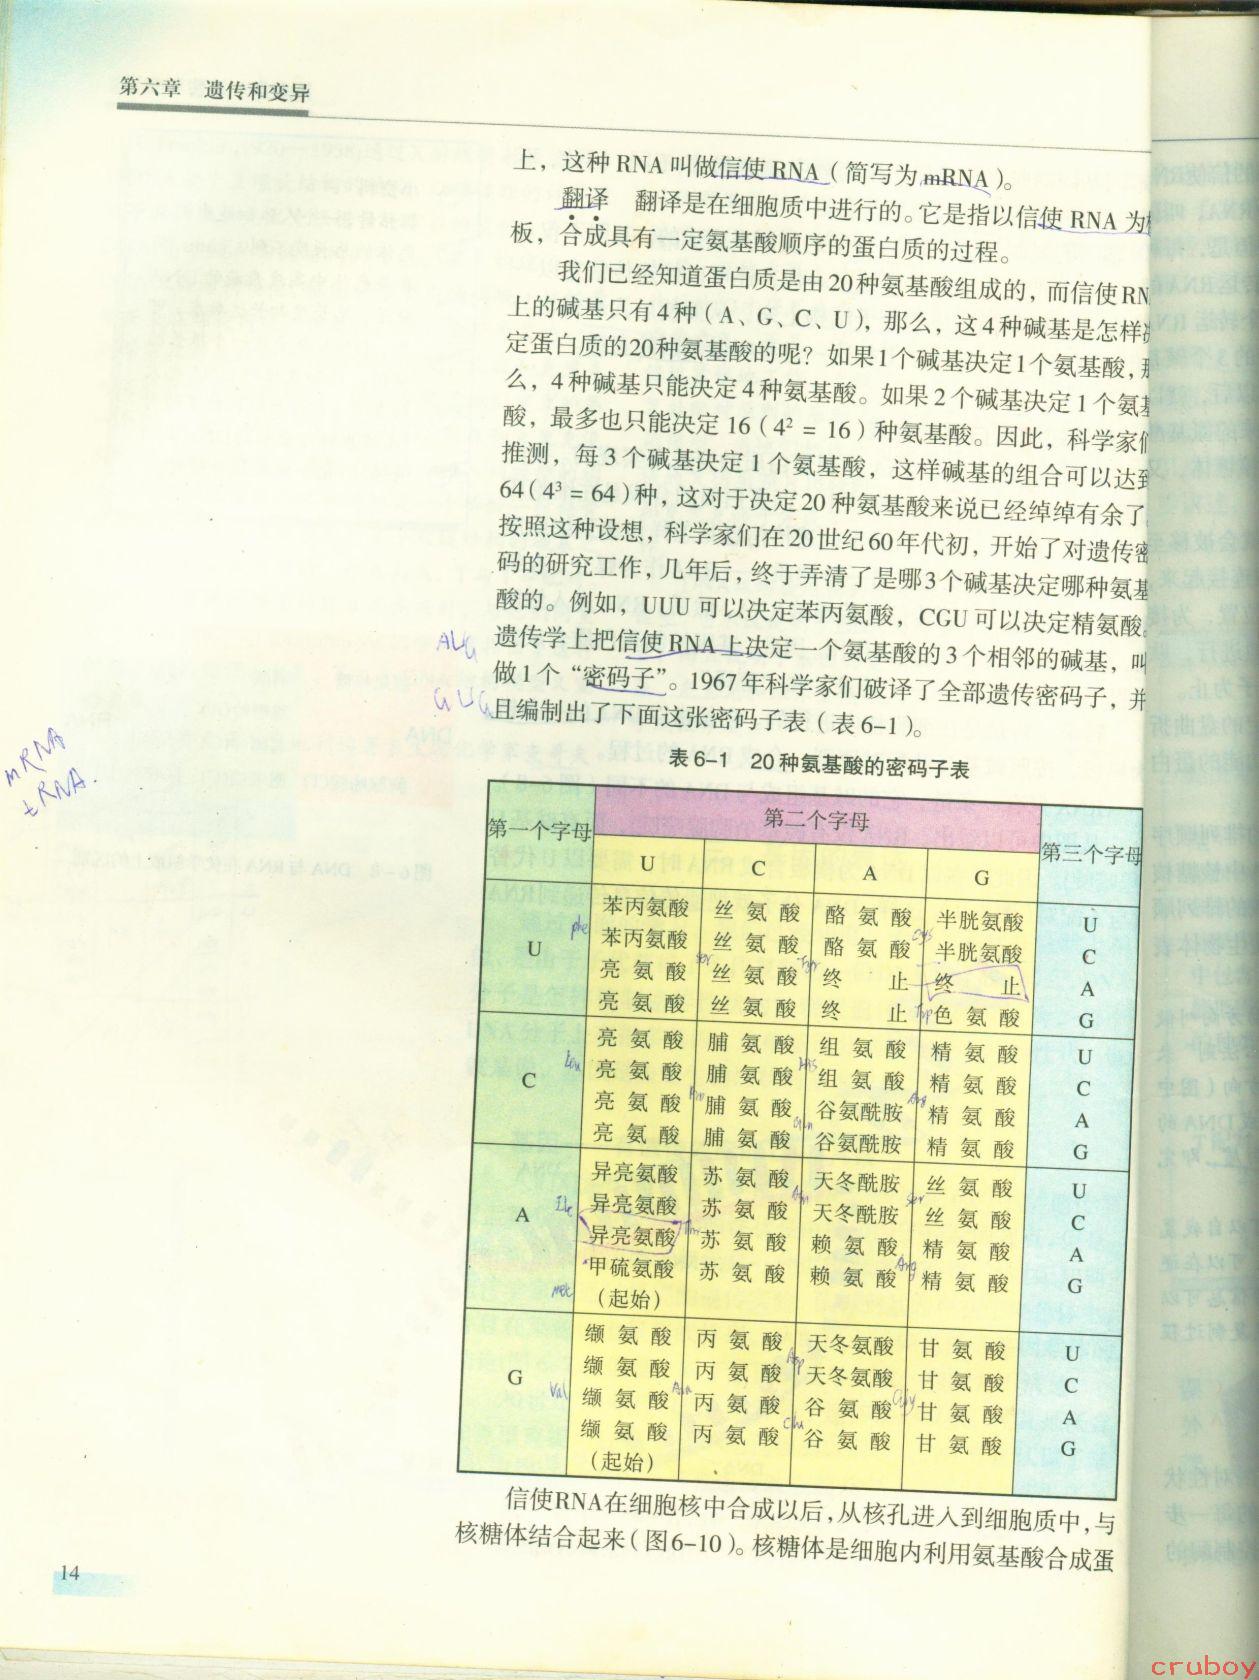 第六章 遗传和变异
上，这种 RNA 叫做信使 RNA（简写为 mRNA）。
翻译 翻译是在细胞质中进行的。它是指以信使 RNA 为
板，合成具有一定氨基酸顺序的蛋白质的过程。
我们已经知道蛋白质是由 20 种氨基酸组成的，而信使 RN
上的碱基只有 4 种（A、G、C、U），那么，这 4 种碱基是怎样
定蛋白质的20种氨基酸的呢？如果1个碱基决定1个氨基酸，
么，4 种碱基只能决定 4 种氨基酸。如果 2 个碱基决定 1 个氨基
酸，最多也只能决定 16（4² = 16）种氨基酸。因此，科学家们
推测，每 3 个碱基决定 1 个氨基酸，这样碱基的组合可以达到
64（4³ = 64）种，这对于决定20 种氨基酸来说已经绰绰有余了
按照这种设想，科学家们在20世纪60年代初，开始了对遗传密
码的研究工作，几年后，终于弄清了是哪3个碱基决定哪种氨基
酸的。例如，UUU 可以决定苯丙氨酸，CGU 可以决定精氨酸。
AUG
遗传学上把信使 RNA 上决定一个氨基酸的 3 个相邻的碱基，叫
做 1 个“密码子”。1967 年科学家们破译了全部遗传密码子，并
GUG
且编制出了下面这张密码子表（表 6-1）。
mRNA
tRNA
表 6-1 20 种氨基酸的密码子表
第一个字母 第二个字母 第三个字母
U C A G
U
phe 苯丙氨酸 丝氨酸 酪氨酸 Cys 半胱氨酸 U
苯丙氨酸 Ser 丝氨酸 Tyr 酪氨酸 半胱氨酸 C
亮氨酸 丝氨酸 终止 终止 A
亮氨酸 丝氨酸 终止 Trp 色氨酸 G
C
Leu 亮氨酸 脯氨酸 His 组氨酸 精氨酸 U
亮氨酸 脯氨酸 组氨酸 Arg 精氨酸 C
亮氨酸 脯氨酸 Gln 谷氨酰胺 精氨酸 A
亮氨酸 脯氨酸 谷氨酰胺 精氨酸 G
A
Ile 异亮氨酸 苏氨酸 Asn 天冬酰胺 Ser 丝氨酸 U
异亮氨酸 苏氨酸 天冬酰胺 丝氨酸 C
异亮氨酸 苏氨酸 赖氨酸 Arg 精氨酸 A
met 甲硫氨酸 苏氨酸 赖氨酸 精氨酸 G
（起始）
G
Val 缬氨酸 丙氨酸 Asp 天冬氨酸 甘氨酸 U
缬氨酸 丙氨酸 天冬氨酸 Gly 甘氨酸 C
缬氨酸 丙氨酸 谷氨酸 甘氨酸 A
缬氨酸 丙氨酸 谷氨酸 甘氨酸 G
（起始）
信使RNA在细胞核中合成以后，从核孔进入到细胞质中，与
核糖体结合起来（图6-10）。核糖体是细胞内利用氨基酸合成蛋
14
cruboy